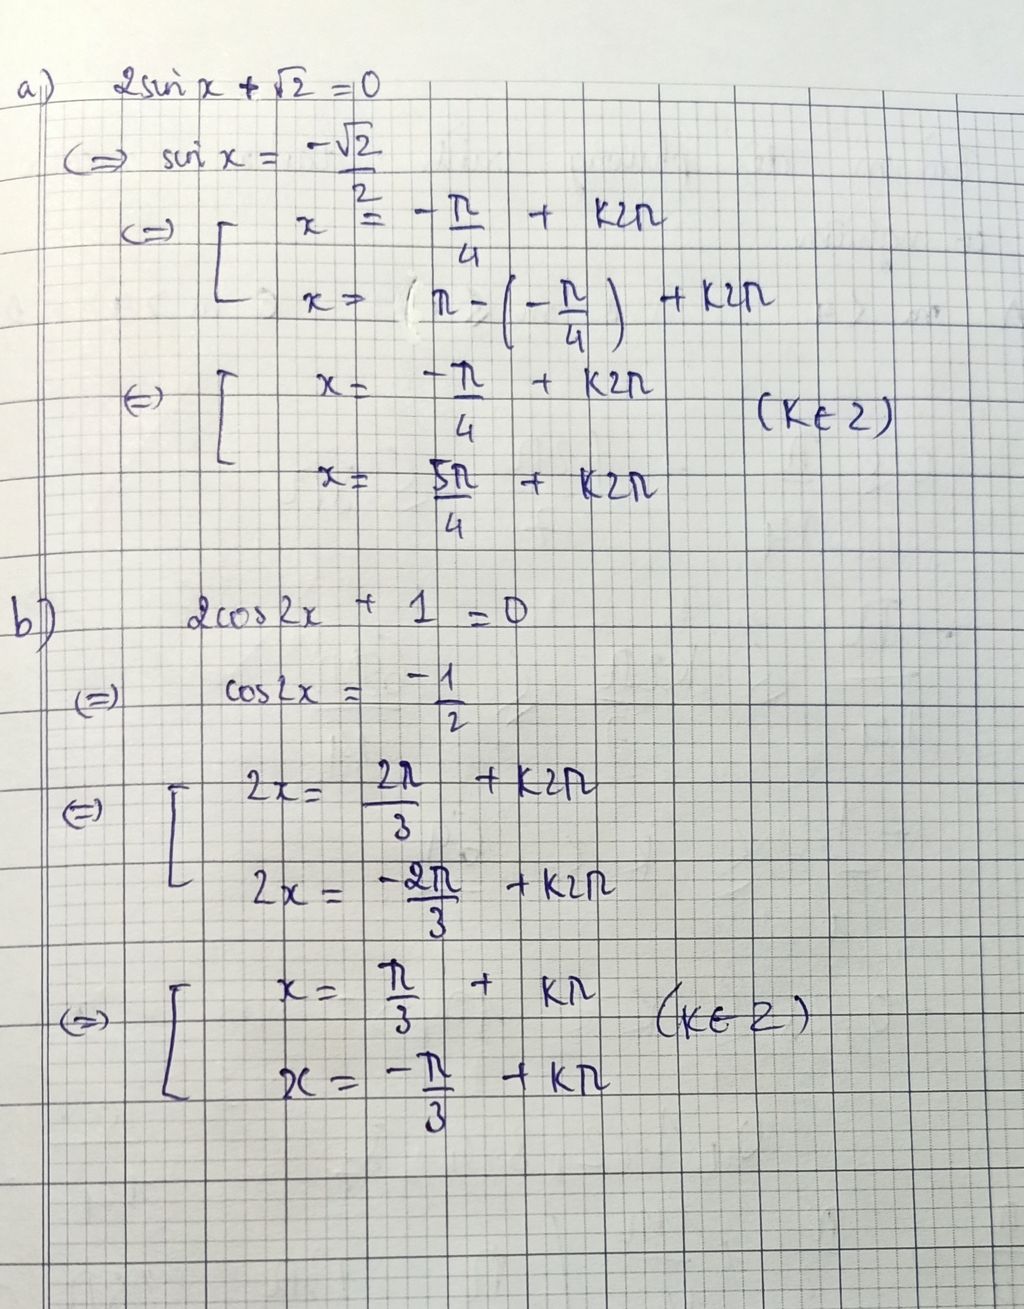 a) 2sin x + √2 = 0
(=) sin x = -√2/2
(=) [ x = -π/4 + K2π
x = (π - (-π/4) + K2π
(=) [ x = -π/4 + K2π (K∈Z)
x = 5π/4 + K2π
b) 2cos2x + 1 = 0
(=) cos2x = -1/2
(=) [ 2x = 2π/3 + K2π
2x = -2π/3 + K2π
(=) [ x = π/3 + Kπ (K∈Z)
x = -π/3 + Kπ